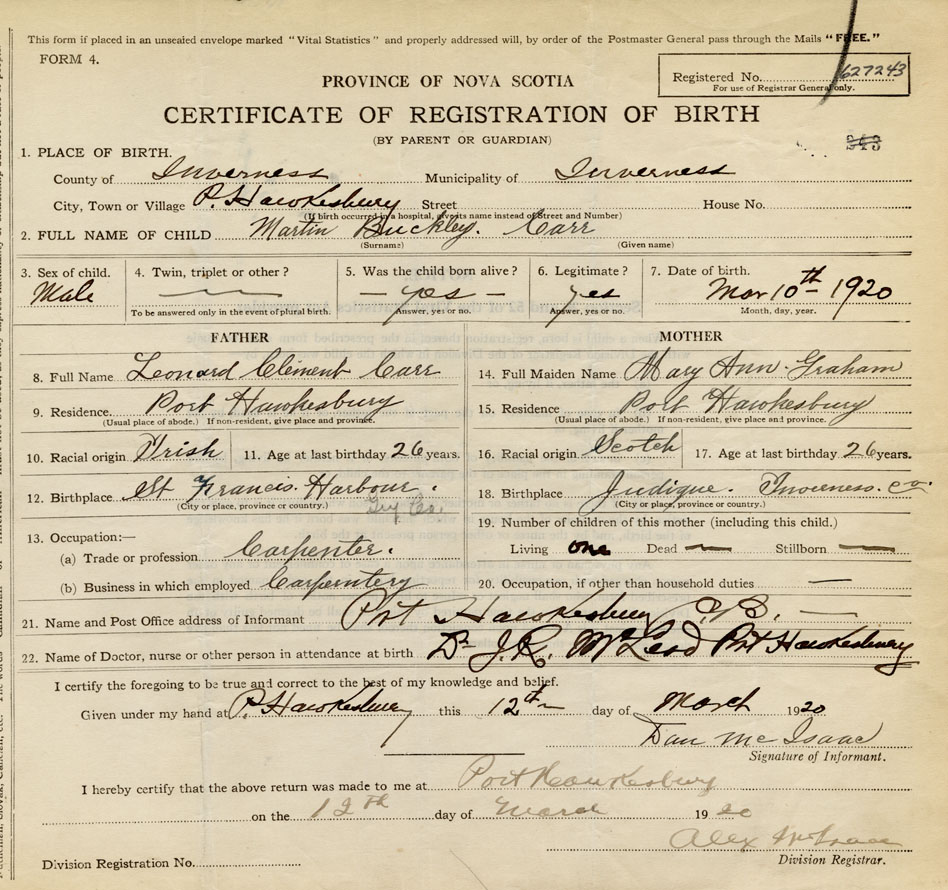 This form if placed in an unsealed envelope marked "Vital Statistics" and properly addressed will, by order of the Postmaster General pass through the Mails "FREE."
FORM 4.
Registered No. 627243
For use of Registrar General only.
PROVINCE OF NOVA SCOTIA
CERTIFICATE OF REGISTRATION OF BIRTH
(BY PARENT OR GUARDIAN)
243
1. PLACE OF BIRTH.
County of Inverness Municipality of Inverness
City, Town or Village P. Hawkesbury Street House No.
(If birth occurred in a hospital, give its name instead of Street and Number)
2. FULL NAME OF CHILD Martin Buckley. Carr
(Surname) (Given name)
3. Sex of child. 4. Twin, triplet or other? 5. Was the child born alive? 6. Legitimate? 7. Date of birth.
Male — yes — yes Mar 10th 1920
To be answered only in the event of plural birth. Answer, yes or no. Answer, yes or no. Month, day, year.
FATHER
8. Full Name Leonard Clement Carr
9. Residence. Port Hawkesbury
(Usual place of abode.) If non-resident, give place and province.
10. Racial origin Irish 11. Age at last birthday 26 years.
12. Birthplace St Francis. Harbour.
(City or place, province or country.) Guy Co.
13. Occupation:—
(a) Trade or profession Carpenter.
(b) Business in which employed Carpentery
MOTHER
14. Full Maiden Name Mary Ann Graham
15. Residence Port Hawkesbury
(Usual place of abode.) If non-resident, give place and province.
16. Racial origin Scotch 17. Age at last birthday 26 years.
18. Birthplace Judique. Inverness. co.
(City or place, province or country.)
19. Number of children of this mother (including this child.)
Living one Dead — Stillborn —
20. Occupation, if other than household duties —
21. Name and Post Office address of Informant Port Hawkesbury C.B. —
22. Name of Doctor, nurse or other person in attendance at birth Dr J.R. McLeod Port Hawkesbury
I certify the foregoing to be true and correct to the best of my knowledge and belief.
Given under my hand at P. Hawkesbury this 12th day of March 1920
Dan Mc Isaac
Signature of Informant.
I hereby certify that the above return was made to me at Port Hawkesbury
on the 12th day of 1920
Alex McIsaac
Division Registration No. Division Registrar.